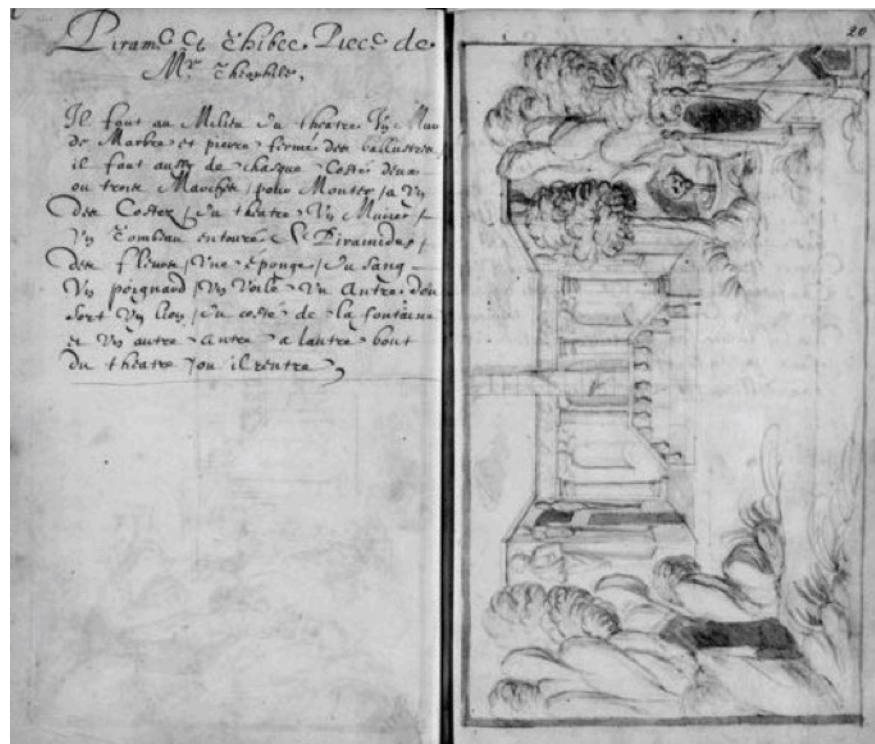 Piram.e et Thisbee. Piece de.
Mr Theophile,
Il faut au Milieu du theatre Vn Mur
de Marbre et pierre fermé. des ballustres
il faut aussy de chasque Costé deux
ou trois Marches pour Monter / a Vn
des Costez / du theatre Vn Murier /
Vn Tombeau entouré. de Piramides /
des fleurs / Vne éponge / du Sang
Vn poignard / Vn Voile Vn Antre. d'ou
sort Vn lion / du costé de la fontaine
et Vn autre Antre a lautre bout
du theatre / ou il rentre,
20